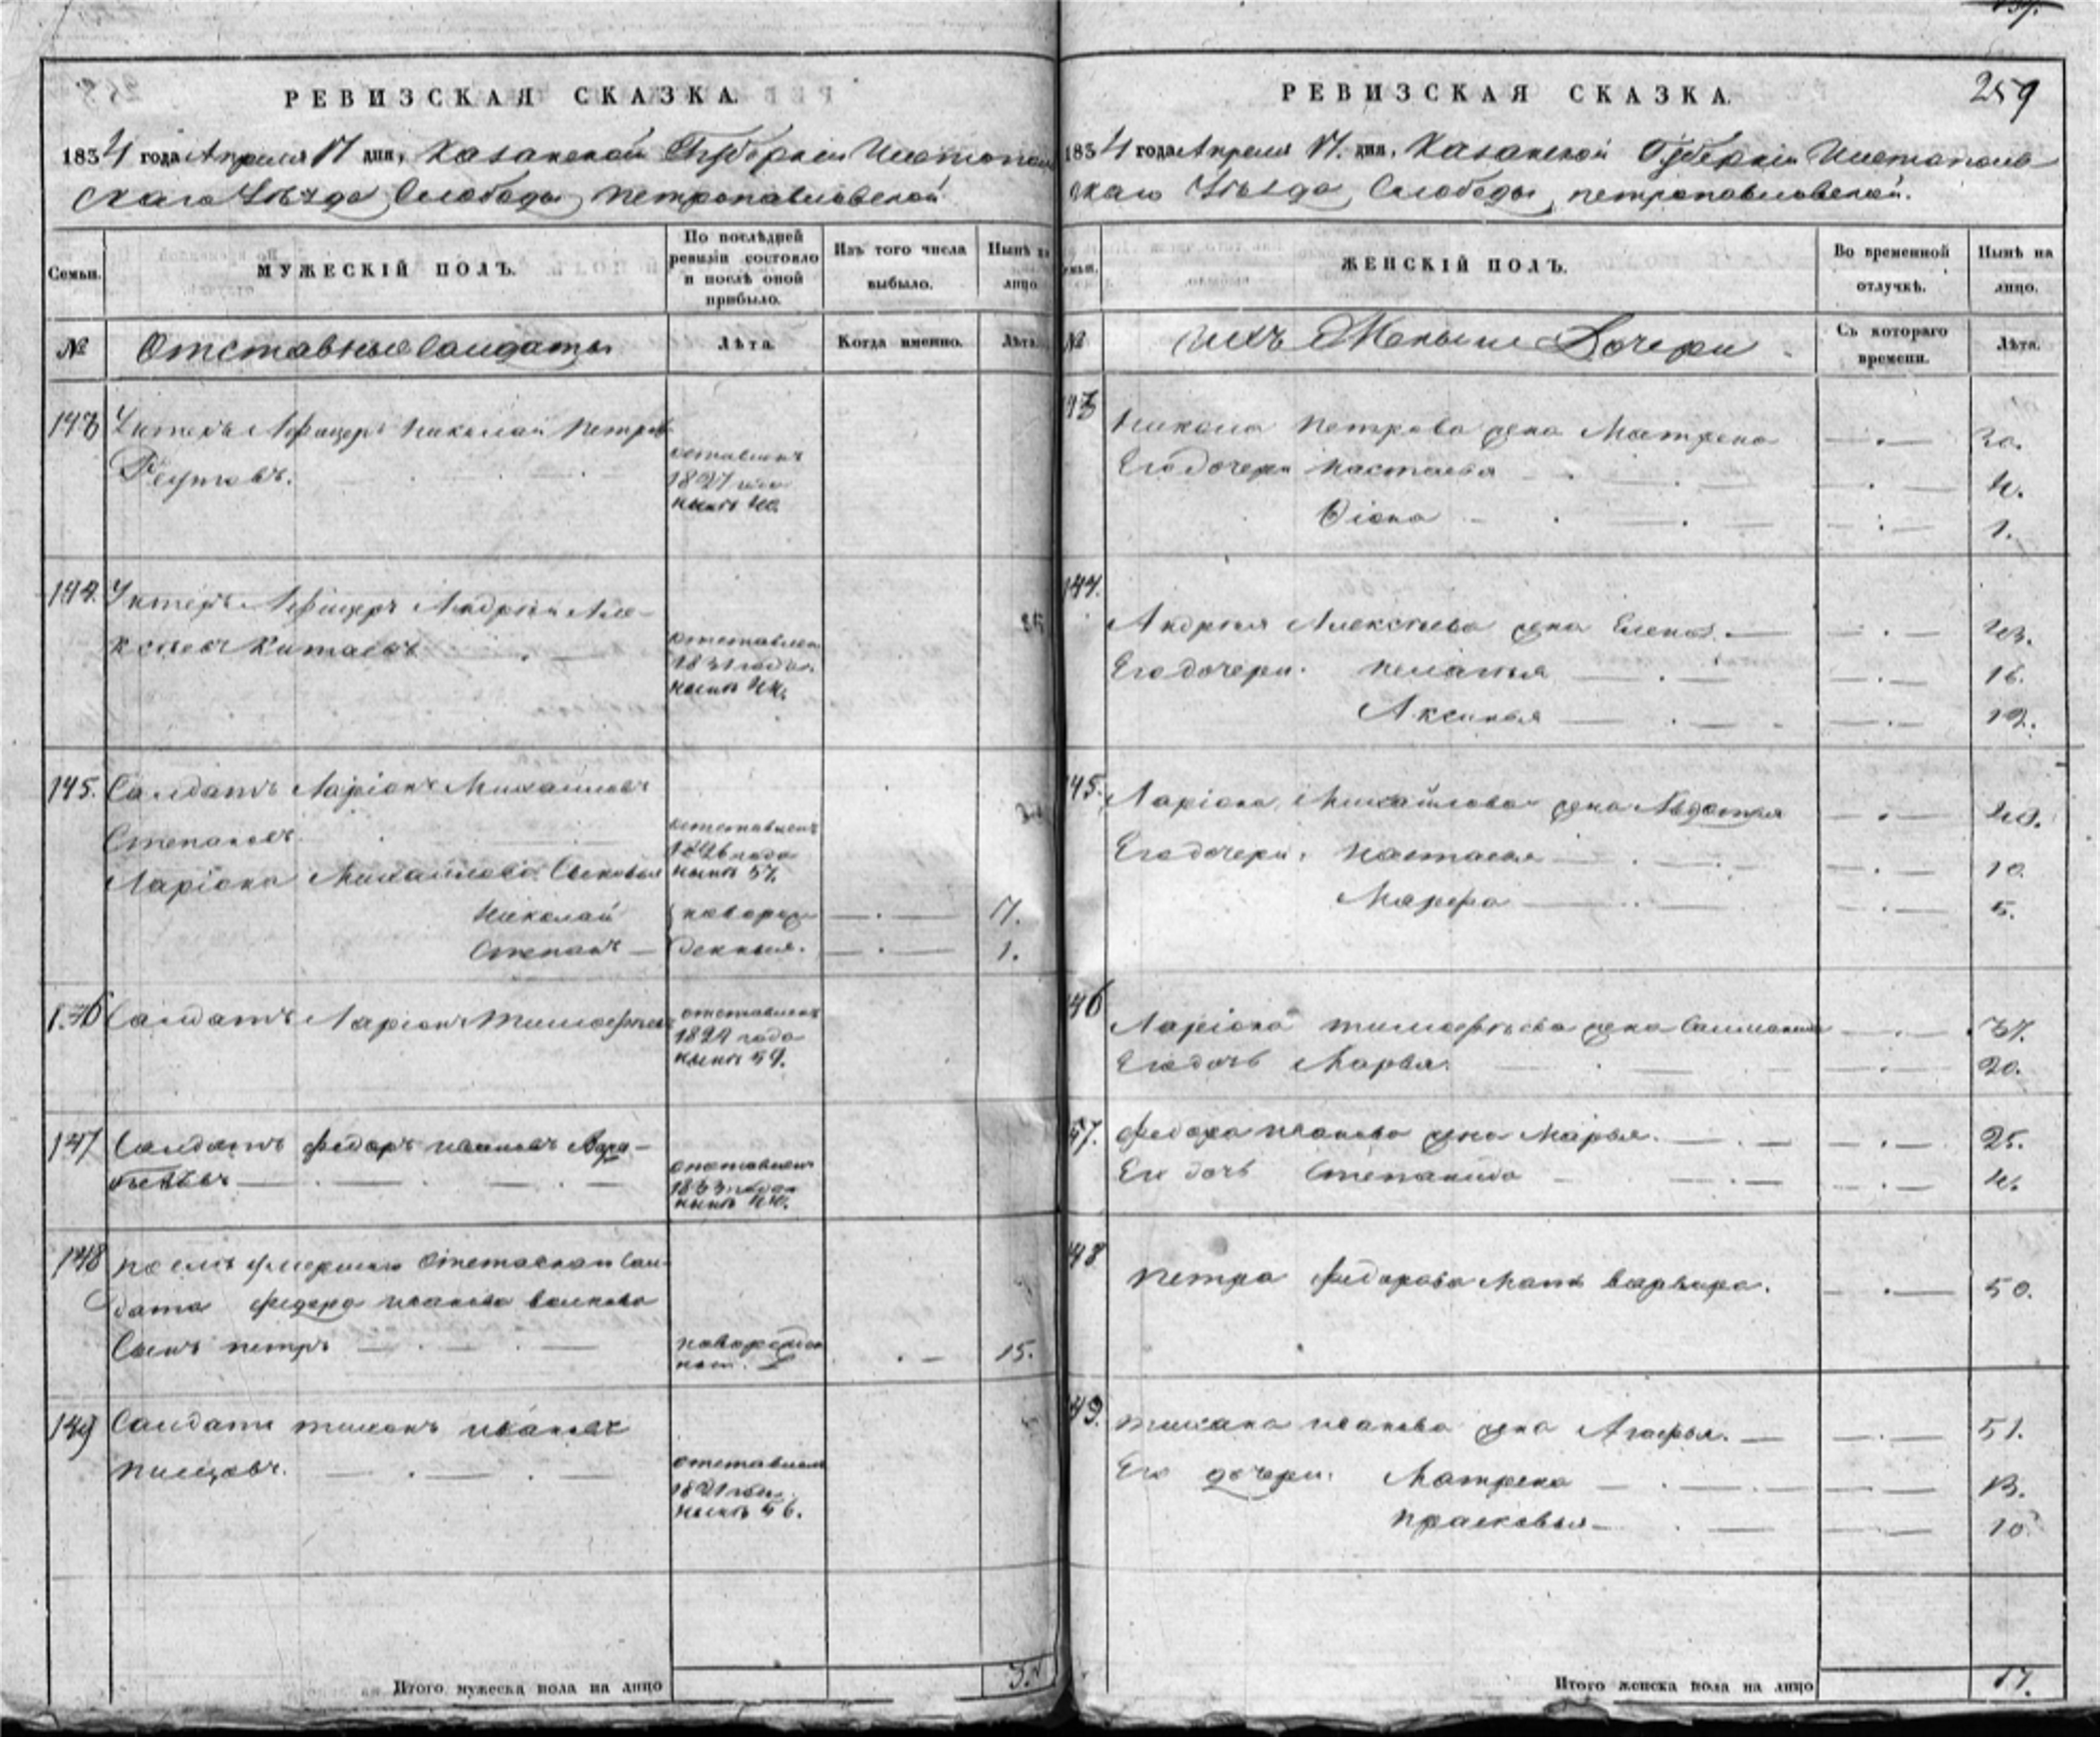 259
РЕВИЗСКАЯ СКАЗКА.
1834 года Апреля 17 дня, Казанской Губернии Чистополь
скаго Уезда Слободы Петропавловской
Семьи.
МУЖЕСКІЙ ПОЛЪ.
По послѣдней ревизіи состояло и послѣ оной прибыло.
Изъ того числа выбыло.
Нынѣ на лицо
№
Отставные Салдаты
Лѣта.
Когда именно.
Лѣта.
143
Унтеръ Афицеръ Николай Петров
отставленъ
1827 года
нынѣ 40.
144.
Унтеръ Афицеръ Андрей Але-
ксѣевъ Китаевъ
отставлен
1831 года.
нынѣ 44.
145.
Салдатъ Ларіонъ Михайловъ
Степановъ
отставленъ
1826 года
нынѣ 57.
Ларіона Михайлова Сыновья
Николай
новорож
7.
Степанъ
денныя.
1.
146
Салдатъ Ларіонъ Тимофѣев
отставленъ
года
нынѣ 59.
147
Салдатъ Федоръ Ивановъ
отставленъ
1833 года
нынѣ 44.
148
После умершаго Отставнаго Сал
дата Федора Иванова Волкова
Сынъ Петръ
новорожден
ной.
15.
149
Салдатъ Тихонъ Ивановъ
Пищовъ.
отставлен
нынѣ 56.
Итого мужеска пола на лицо
3.
РЕВИЗСКАЯ СКАЗКА.
1834 года Апреля 17. дня. Казанской Губерніи Чистополь
скаго Уѣзда Слободы Петропавловской.
Семьи.
ЖЕНСКІЙ ПОЛЪ.
Во временной отлучкѣ.
Нынѣ на лицо.
№
ихъ Жены и Дочери
Съ котораго времени.
Лѣта.
143
Николая Петрова жена Матрена
30.
Его дочери Настасья
4.
1.
144.
Андрея Алексѣева жена Елена
43.
Его дочери. Пелагѣя
16.
Аксинья
12.
145.
Ларіона Михайлова жена Авдотья
40.
Его дочери. Настасья
10.
Марфа
5.
146
Ларіона Тимофѣева жена Саламанида
57.
Его дочь Марья.
20.
147.
Федора Иванова жена Марья.
25.
Его дочь Степанида
4.
148
Петра Федорова Мать Варвара.
50.
149.
Тихона Иванова жена Агафья.
51.
Его дочери. Матрена
13.
Прасковья
10
Итого женска пола на лицо
17.